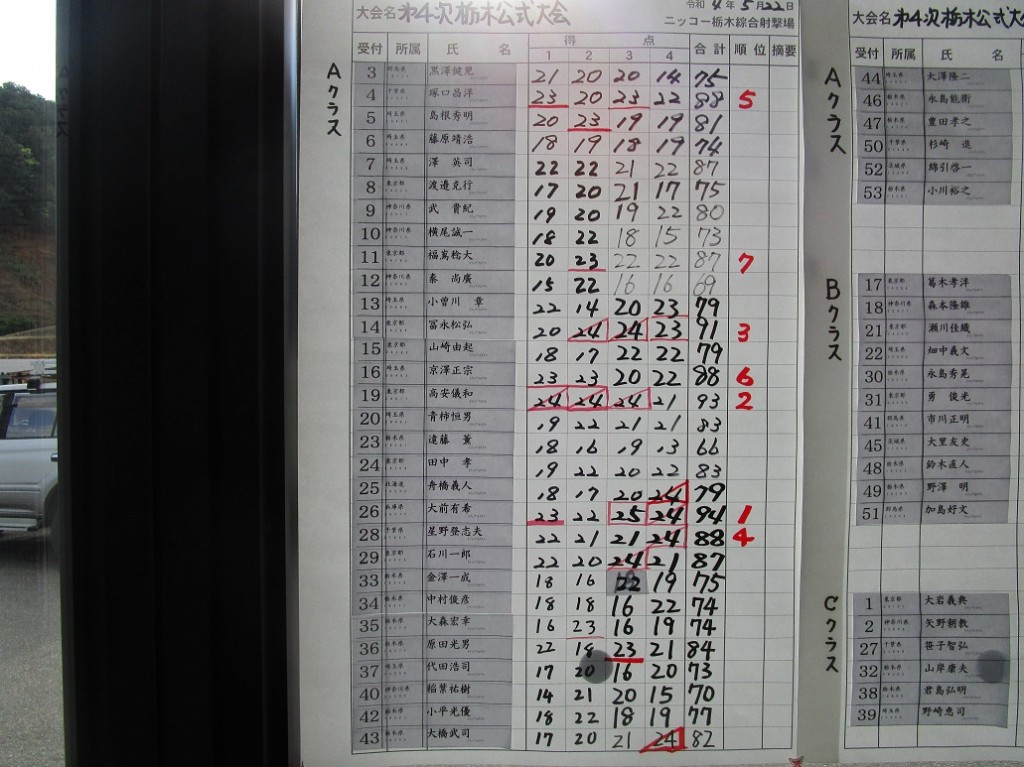 大会名 第4次栃木公式大会
令和 4年 5月 22日
ニッコー栃木綜合射撃場
受付 所属 氏 名 得 点 合計 順位 摘要
1 2 3 4
Aクラス
3 群馬県 黒澤健児 21 20 20 14 75
4 千葉県 塚口昌洋 23 20 23 22 88 5
5 埼玉県 島根秀明 20 23 19 19 81
6 藤原靖浩 18 19 18 19 74
7 埼玉県 澤 英司 22 22 21 22 87
8 東京都 渡邉克行 17 20 21 17 75
9 神奈川県 武 貴紀 19 20 19 22 80
10 神奈川県 横尾誠一 18 22 18 15 73
11 東京都 福嶌稔大 20 23 22 22 87 7
12 神奈川県 秦 尚廣 15 22 16 16 69
13 埼玉県 小曽川 章 22 14 20 23 79
14 東京都 冨永松弘 20 24 24 23 91 3
15 東京都 山崎由起 18 17 22 22 79
16 埼玉県 京澤正宗 23 23 20 22 88 6
19 東京都 高安儀和 24 24 24 21 93 2
20 埼玉県 青柿恒男 19 22 21 21 83
23 栃木県 遠藤 薫 18 16 19 13 66
24 東京都 田中 孝 19 22 20 22 83
25 北海道 舟橋義人 18 17 20 24 79
26 兵庫県 大前有希 23 22 25 24 94 1
28 千葉県 星野登志夫 22 21 21 24 88 4
29 東京都 石川一郎 22 20 24 21 87
33 栃木県 金澤一成 18 16 22 19 75
34 栃木県 中村俊彦 18 18 16 22 74
35 栃木県 大森宏幸 16 23 16 19 74
36 栃木県 原田光男 22 18 23 21 84
37 埼玉県 代田浩司 17 20 16 20 73
40 神奈川県 稲葉祐樹 14 21 20 15 70
42 栃木県 小平光優 18 22 18 19 77
43 栃木県 大橋武司 17 20 21 24 82
大会名 第4次栃木公式大
受付 所属 氏 名
Aクラス
44 埼玉県 大澤隆二
46 栃木県 永島能衛
47 栃木県 豊田孝之
50 千葉県 杉崎 進
52 茨城県 綿引啓一
53 栃木県 小川裕之
Bクラス
17 東京都 葛木孝洋
18 神奈川県 森本隆雄
21 東京都 瀬川佳織
22 埼玉県 畑中義文
30 栃木県 永島秀晃
31 東京都 勇 俊光
41 群馬県 市川正明
45 茨城県 大里友史
48 栃木県 鈴木直人
49 栃木県 野澤 明
51 群馬県 加島好文
Cクラス
1 東京都 大岩義典
2 神奈川県 矢野朝教
27 千葉県 笹子智弘
32 栃木県 山岸康夫
38 栃木県 君島弘明
39 埼玉県 野崎恵司